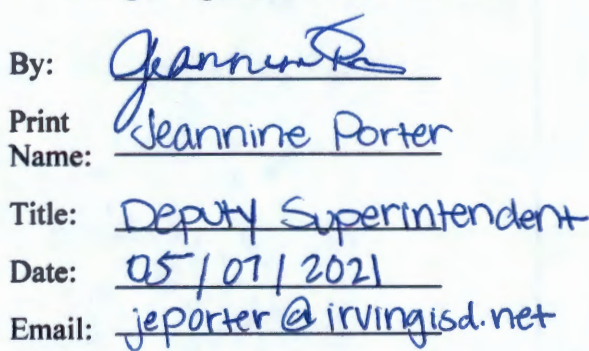 By: Jeannine Por
Print
Name: Jeannine Porter
Title: Deputy Superintendent
Date: 05/07/2021
Email: jeporter@irvingisd.net